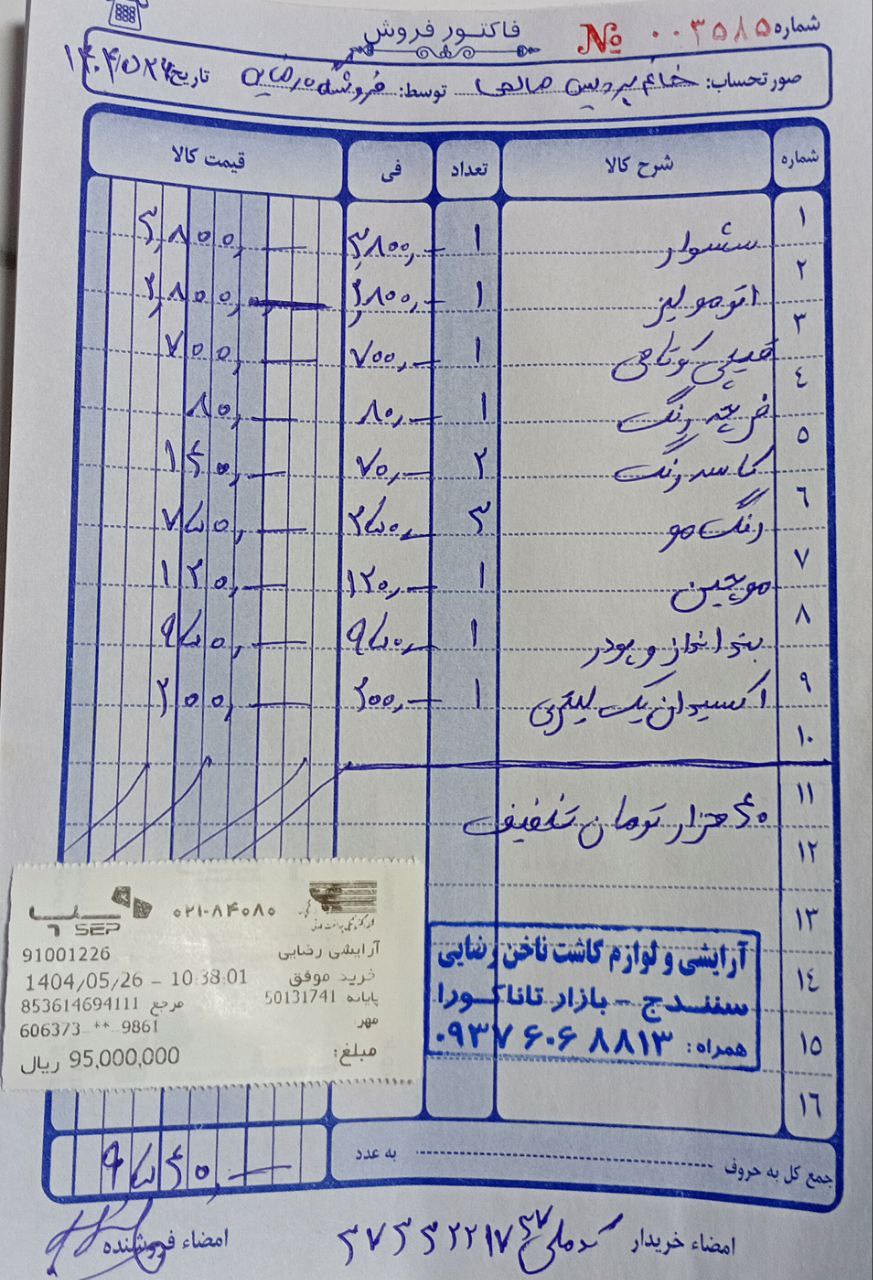 فاکتور فروش
شماره № ۰۰۳۵۸۵
صورتحساب: خانم پردیس صالحی توسط: فروشگاه رضایی تاریخ: ۱۴۰۴/۵/۲۶
شماره شرح کالا تعداد فی قیمت کالا
۱ سشوار ۱ ۳,۸۰۰,— ۳,۸۰۰,—
۲ اتو مو لیز ۱ ۲,۸۰۰,— ۲,۸۰۰,—
۳ قیچی کوتاهی ۱ ۷۰۰,— ۷۰۰,—
۴ فرچه رنگ ۱ ۸۰,— ۸۰,—
۵ کاسه رنگ ۲ ۷۰,— ۱۴۰,—
۶ رنگ مو ۳ ۲۵۰,— ۷۵۰,—
۷ موچین ۱ ۱۲۰,— ۱۲۰,—
۸ بند انداز و پودر ۱ ۹۵۰,— ۹۵۰,—
۹ اکسیدان یک لیتری ۱ ۲۰۰,— ۲۰۰,—
۱۰
۱۱ ۴۰ هزار تومان تخفیف
۱۲
۱۳
۱۴
۱۵
۱۶
آرایشی و لوازم کاشت ناخن رضایی
سنندج - بازار تاناکورا
همراه: ۰۹۳۷ ۶۰۶ ۸۸۱۳
۰۲۱-۸۴۰۸۰
SEP
آرایشی رضایی 91001226
خرید موفق 1404/05/26 - 10:38:01
پایانه 50131741 مرجع 853614694111
مهر 606373 ** 9861
مبلغ: 95,000,000 ریال
جمع کل به حروف به عدد ۹۵۴۰,—
امضاء خریدار کدملی امضاء فروشنده